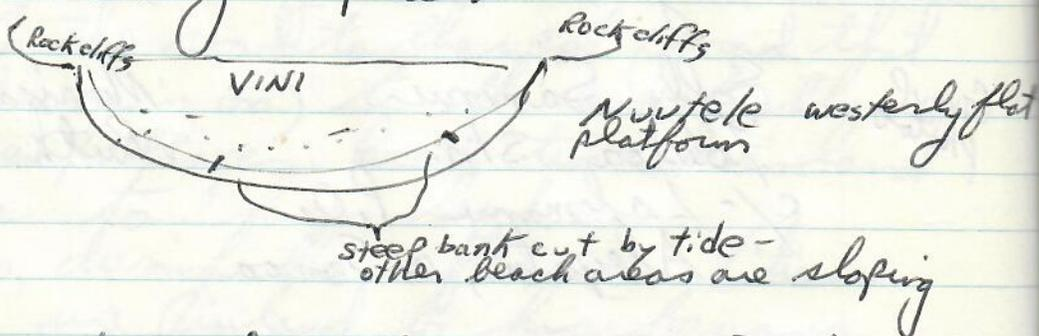 Rock cliffs
Rock cliffs
VINI
Nuutele westerly flat
platform
steep bank cut by tide -
other beach areas are sloping